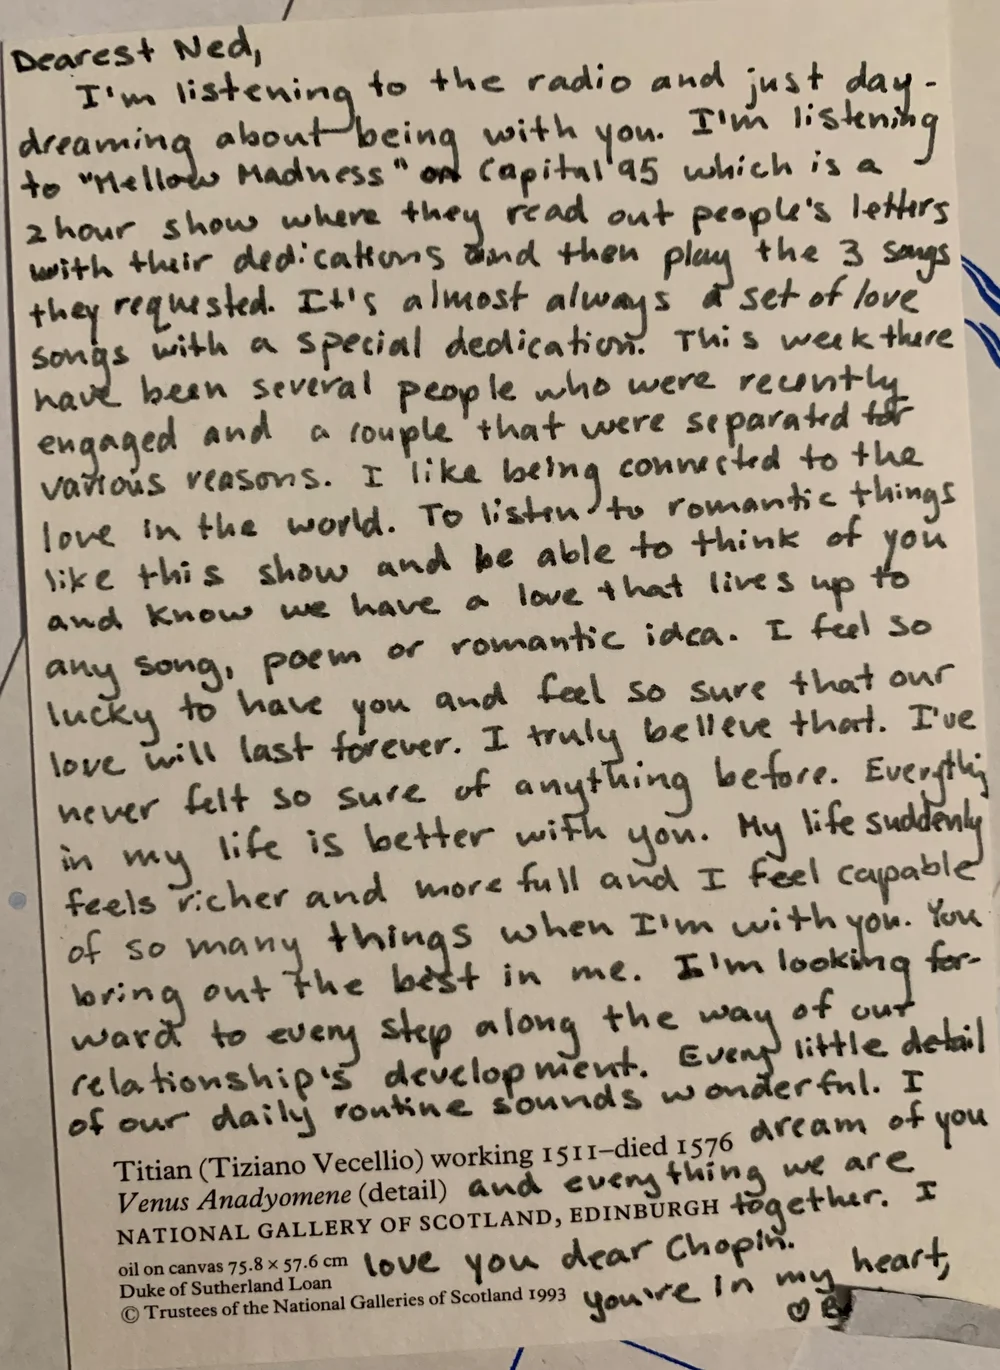 Dearest Ned,
I'm listening to the radio and just day-
dreaming about being with you. I'm listening
to "Mellow Madness" on Capital 95 which is a
2 hour show where they read out people's letters
with their dedications and then play the 3 songs
they requested. It's almost always a set of love
songs with a special dedication. This week there
have been several people who were recently
engaged and a couple that were separated for
various reasons. I like being connected to the
love in the world. To listen to romantic things
like this show and be able to think of you
and know we have a love that lives up to
any song, poem or romantic idea. I feel so
lucky to have you and feel so sure that our
love will last forever. I truly believe that. I've
never felt so sure of anything before. Everything
in my life is better with you. My life suddenly
feels richer and more full and I feel capable
of so many things when I'm with you. You
bring out the best in me. I'm looking for-
ward to every step along the way of our
relationship's development. Every little detail
of our daily routine sounds wonderful. I
Titian (Tiziano Vecellio) working 1511–died 1576 dream of you
Venus Anadyomene (detail) and everything we are
NATIONAL GALLERY OF SCOTLAND, EDINBURGH together. I
oil on canvas 75.8 × 57.6 cm love you dear Chopin.
Duke of Sutherland Loan
© Trustees of the National Galleries of Scotland 1993 you're in my heart,